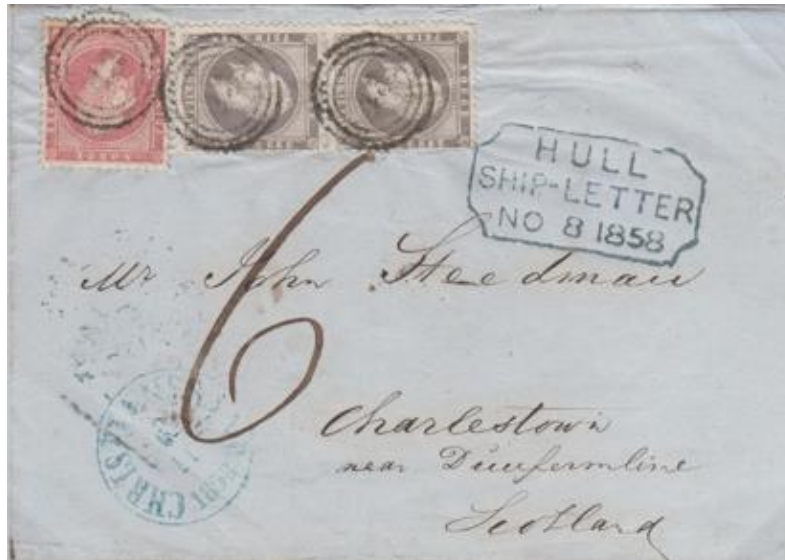 HULL
SHIP-LETTER
NO 8 1858
6
Mr John Steedman
Charlestown
near Dunfermline
Scotland